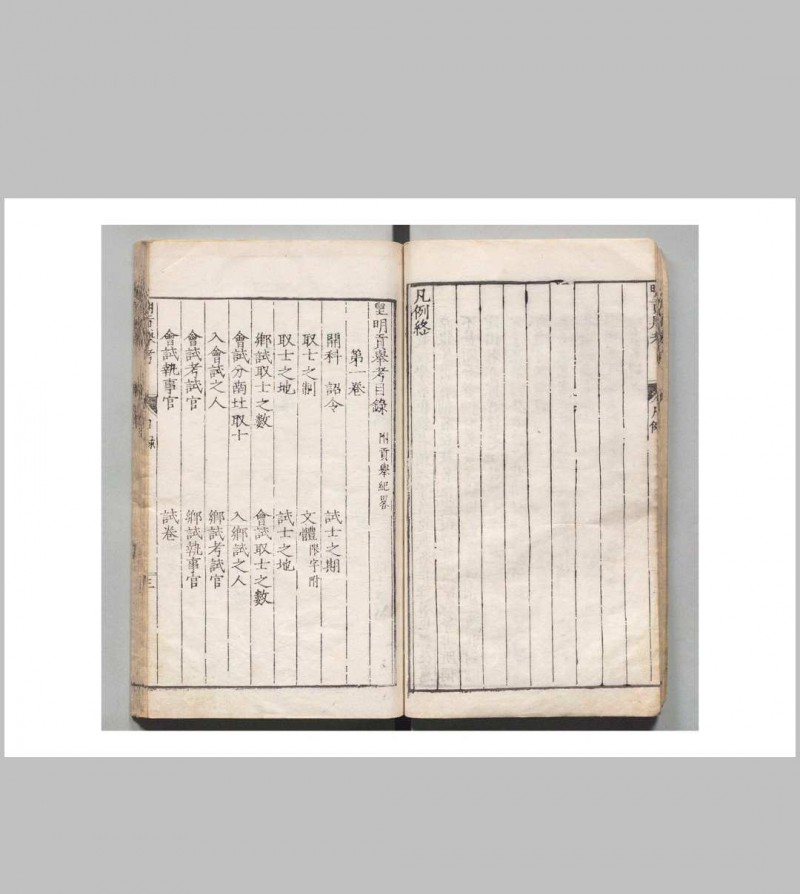 凡例終
皇明貢舉考目錄 附貢舉紀畧
第一卷
開科 詔令 試士之期
取士之制 文體 限字附
取士之地 試士之地
鄉試取士之數 會試取士之數
會試分南北取士 入鄉試之人
入會試之人 鄉試考試官
會試考試官 鄉試執事官
會試執事官 試卷